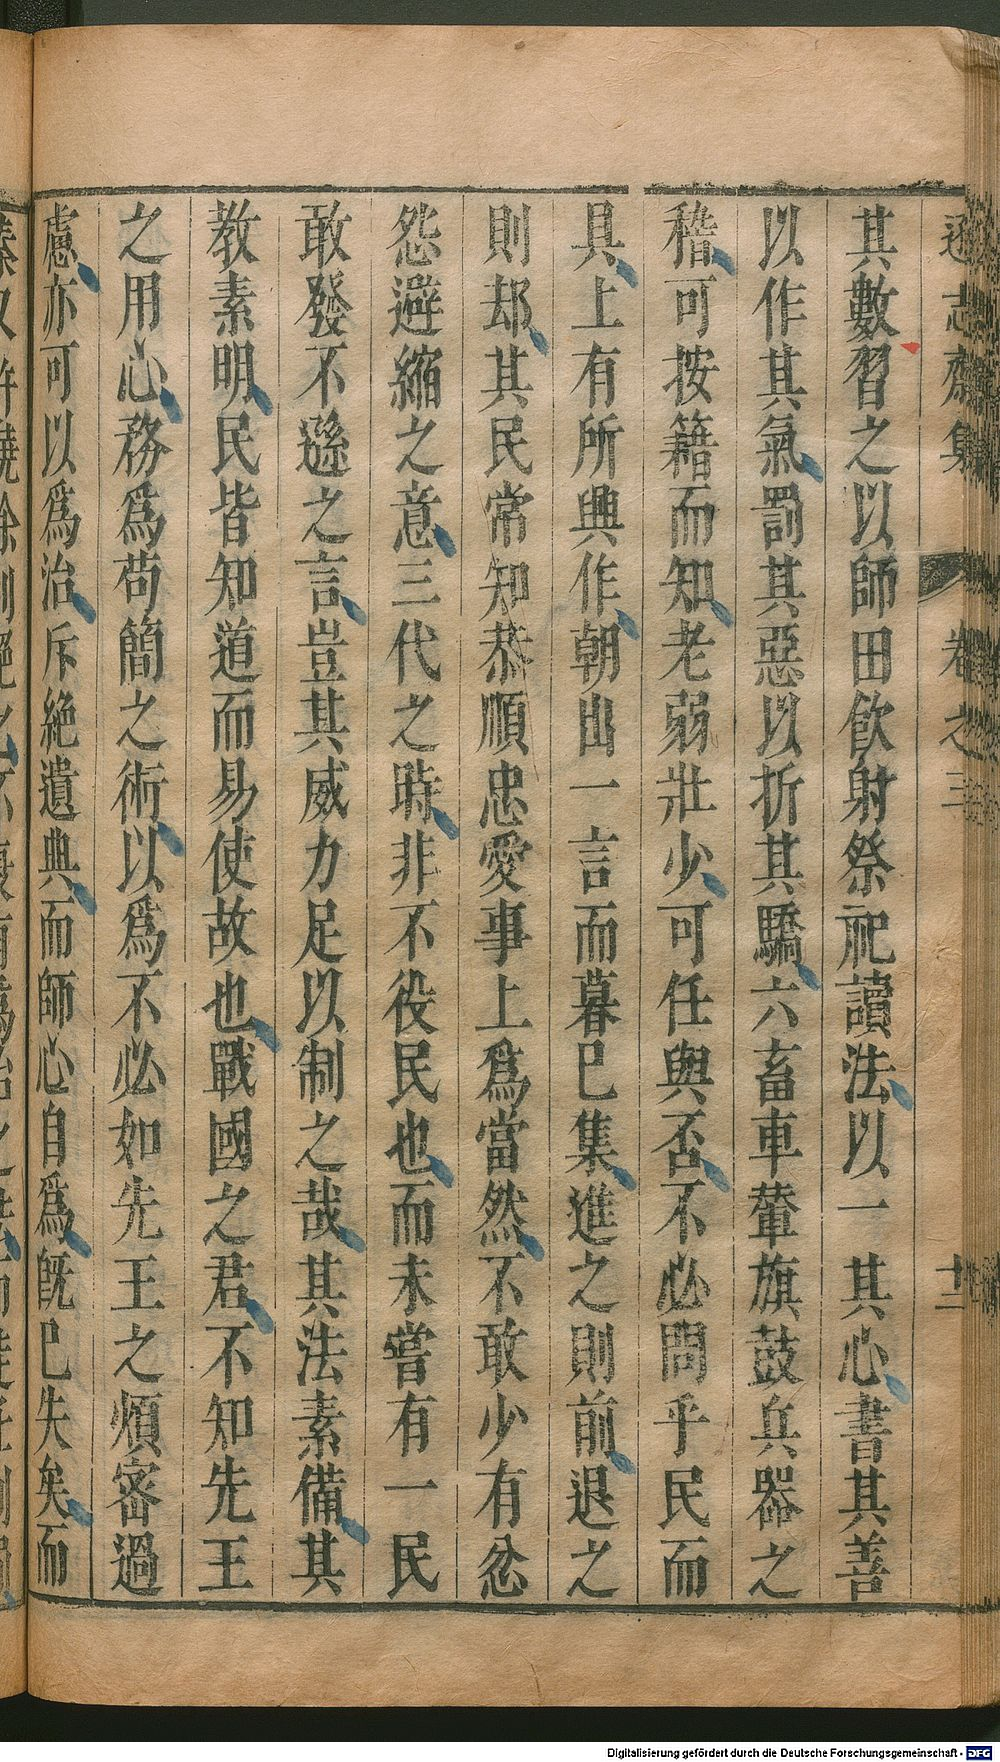 遜志齋集 卷之三 十三
其數習之以師田飲射祭祀讀法以一其心書其善
以作其氣罰其惡以折其驕六畜車輦旗鼓兵器之
稽可按籍而知老弱壯少可任與否不必問乎民而
具上有所興作朝出一言而暮已集進之則前退之
則却其民常知恭順忠愛事上爲當然不敢少有忿
怨避縮之意三代之時非不役民也而未嘗有一民
敢發不遜之言豈其威力足以制之哉其法素備其
教素明民皆知道而易使故也戰國之君不知先王
之用心務爲苟簡之術以爲不必如先王之煩審過
慮亦可以爲治斥絕遺典而師心自爲旣已失矣而
Digitalisierung gefördert durch die Deutsche Forschungsgemeinschaft - DFG